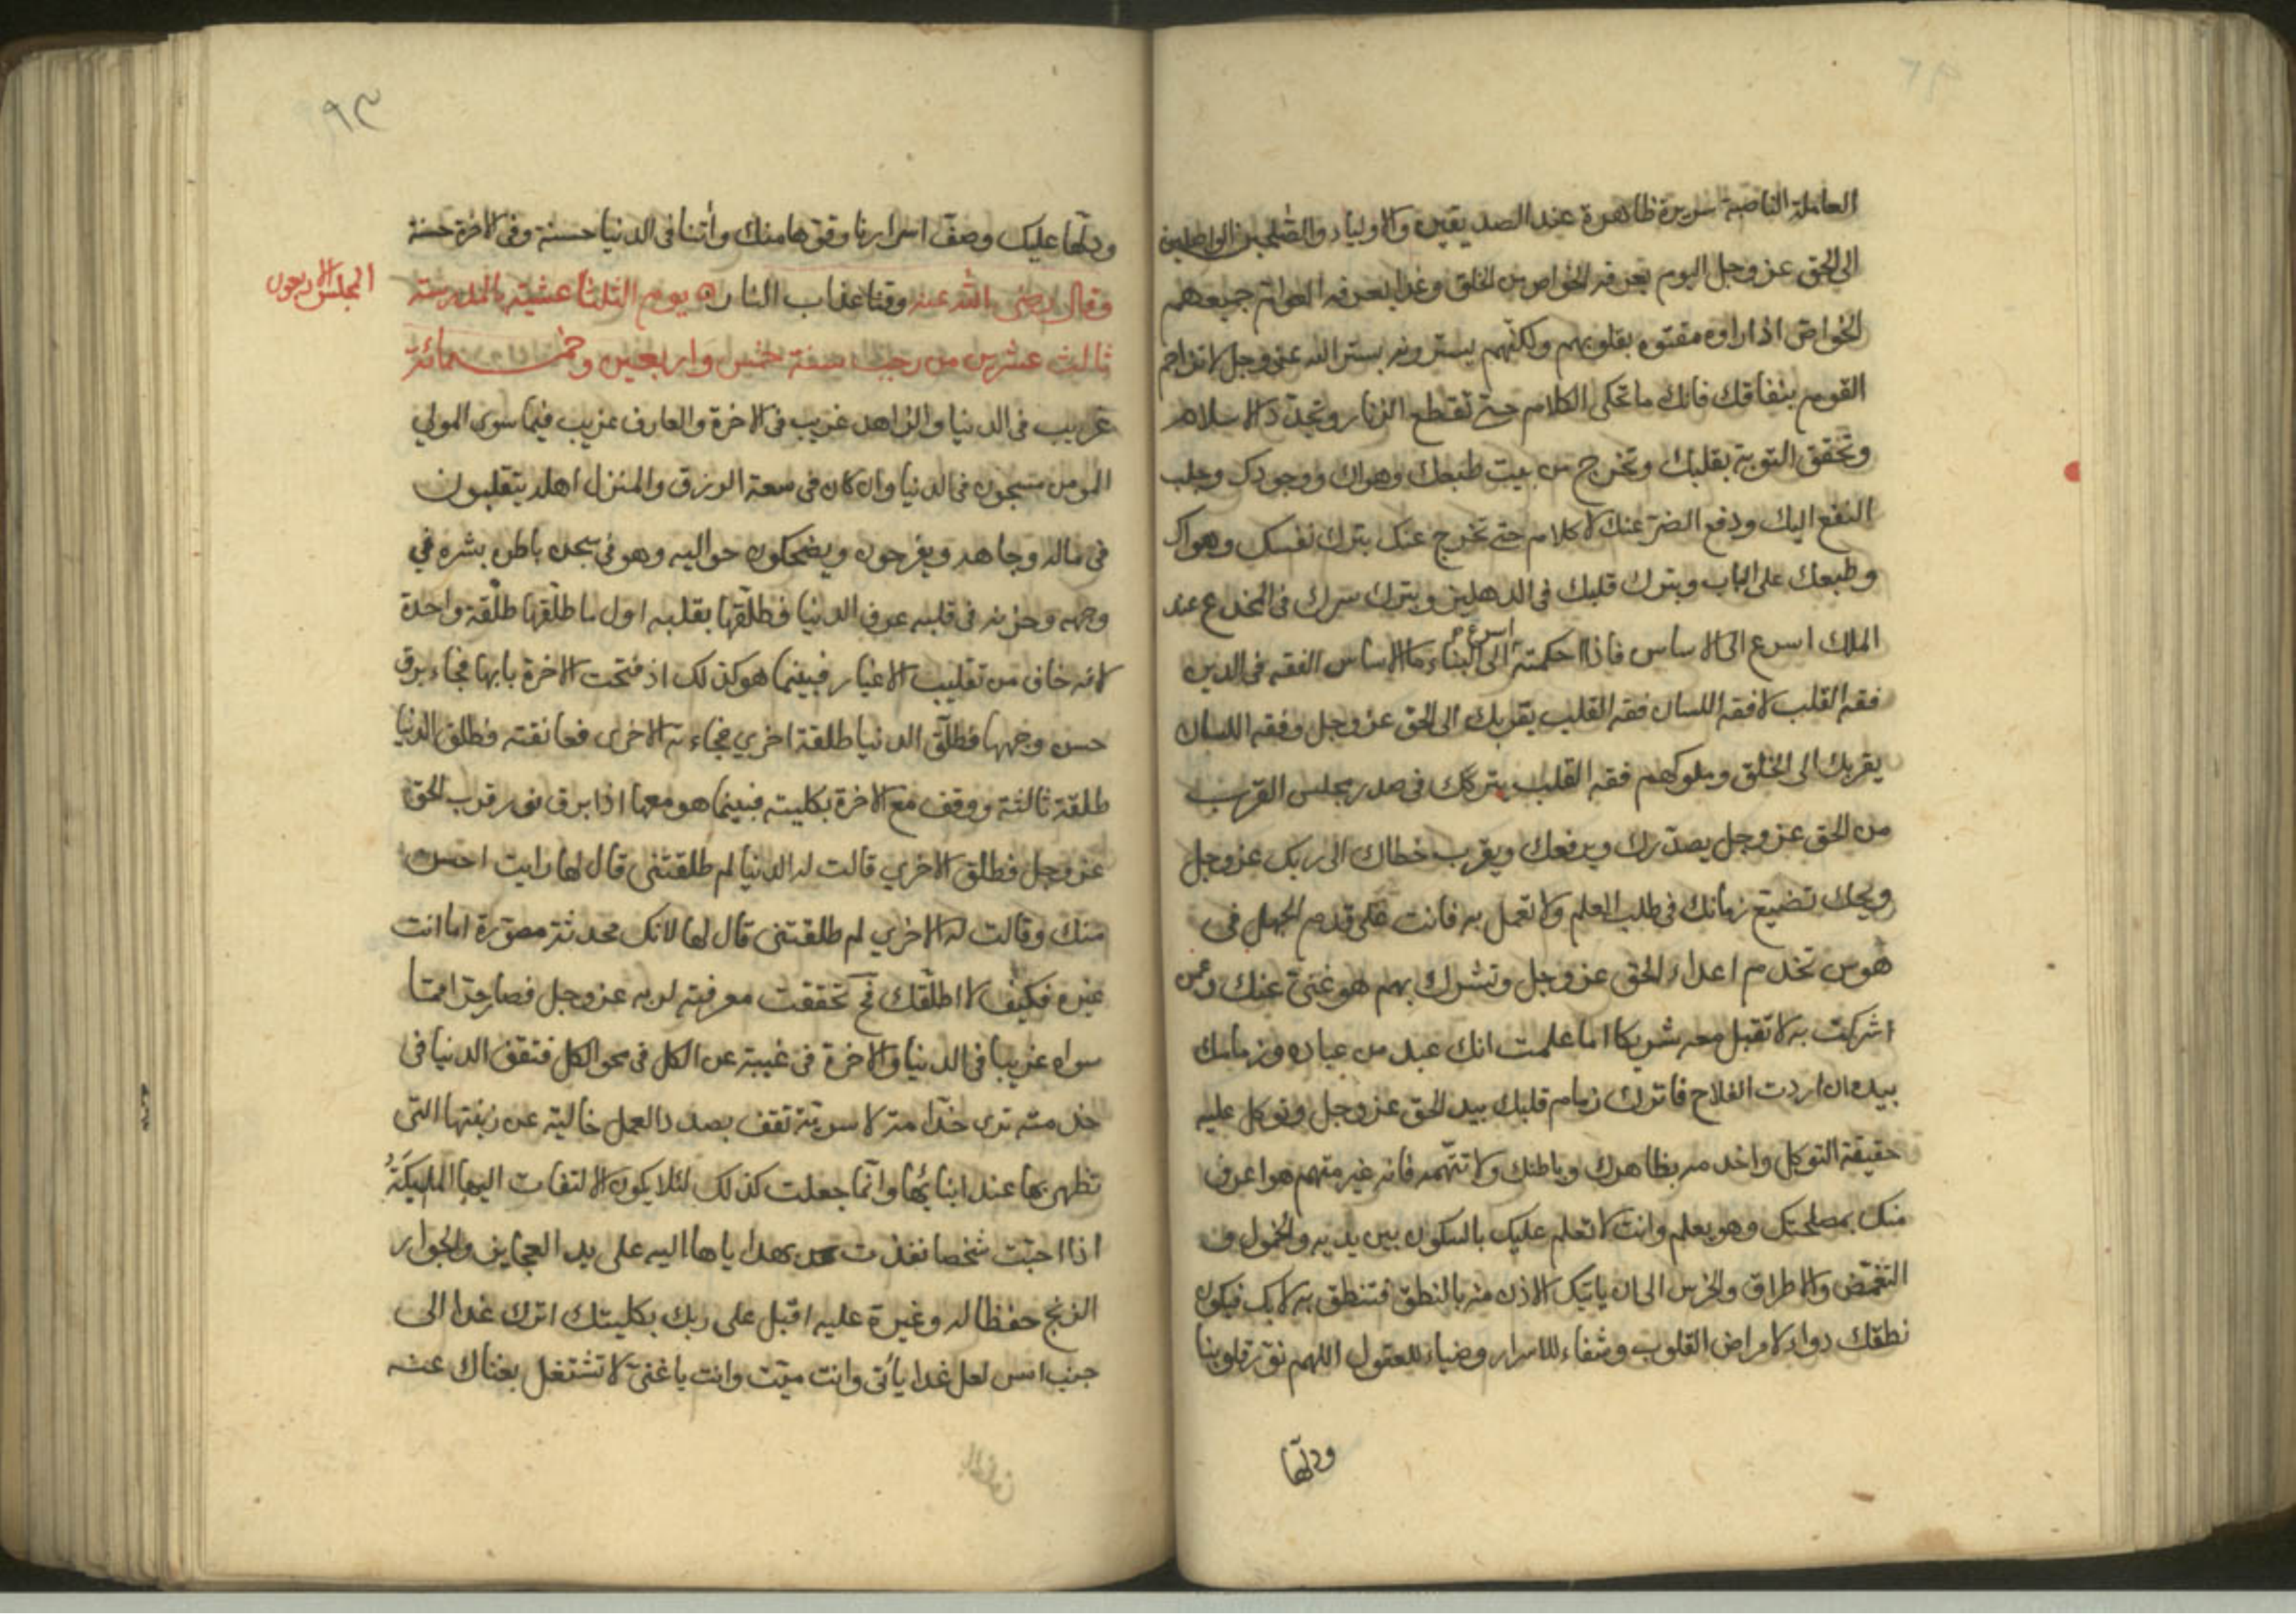 العاملة الناصبة سريرة ظاهرة عند الصديقين والاولياء والصٰلحين الواصلين
الى الحق عز وجل اليوم يعرفه الخواص من الخلق وغدا يعرفه العوام جميعهم
الخواص اذا راوه مقتوه بقلوبهم ولكنهم يسترونه بستر الله عز وجل لا تزاحم
القوم بنفاقك فانك ما تحكى الكلام حتى تقطع الزنار وتجدد الاسلام
وتحقق التوبة بقلبك وتخرج من بيت طبعك وهواك ووجودك وجلب
النفع اليك ودفع الضر عنك لا كلام حتى تخرج عنك بترك نفسك وهواك
وطبعك على الباب وبترك قلبك فى الدهليز وبترك سرك فى المخدع عند
الملك اسرع الى الاساس فاذا احكمته اسرع الى البناء ما الاساس الفقه فى الدين
فقه القلب لا فقه اللسان فقه القلب يقربك الى الحق عز وجل وفقه اللسان
يقربك الى الخلق وملوكهم فقه القلب يتركك فى صدر مجلس القرب
من الحق عز وجل يصدرك ويرفعك ويقرب خطاك الى ربك عز وجل
ويحك تضيع زمانك فى طلب العلم ولا تعمل به فانت على قدم الجهل فى
هوس تخدم اعداء الحق عز وجل وتشرك بهم هو غنىّ عنك وعمن
اشركت به لا تقبل معه شريكا اما علمت انك عبد من عباده وزمامك
بيده ان اردت الفلاح فاترك زمام قلبك بيد الحق عز وجل وتوكل عليه
حقيقة التوكل واخدمه بظاهرك وباطنك ولا تتهمه فانه غير متهم هو اعرف
منك بمصلحتك وهو يعلم وانت لا تعلم عليك بالسكون بين يديه والخمول و
التغمض والاطراق والخرس الى ان ياتيك الاذن منه بالنطق فتنطق به لا بك فيكون
نطقك دواء لامراض القلوب وشفاء للاسرار وضياء للعقول اللهم نوّر قلوبنا
ودلّها
٩٣
ودلّها عليك وصفّ اسرارنا وقربها منك وأتنا فى الدنيا حسنة وفى الاخرة حسنة
المجلس الاربعون
وقنا عذاب النار وقال رضى الله عنه يوم الثلثا عشية بالمدرسة
ثالث عشرين من رجب سنة خمس واربعين وخمسمائة
غريب فى الدنيا والزاهد غريب فى الاخرة والعارف غريب فيما سوى المولي
المومن مسجون فى الدنيا وان كان فى سعة الرزق والمنزل اهله يتقلبون
فى ماله وجاهه ويفرحون ويضحكون حواليه وهو فى سجن باطن بشره في
وجهه وحزنه فى قلبه عرف الدنيا فطلّقها بقلبه اول ما طلّقها طلّقة واحدة
لانه خاف من تقليب الاغيار فبينما هو كذلك اذ فتحت الاخرة بابها فجاء برق
حسن وجهها فطلّق الدنيا طلقة اخري فجاءته الاخرى فعانقته فطلق الدنيا
طلقة ثالثة ووقف مع الاخرة بكليته فبينما هو معها اذا برق نور قرب الحق
عز وجل فطلق الاخري قالت له الدنيا لم طلقتنى قال لها رايت احسن
منك وقالت له الاخري لم طلقتنى قال لها لانك محدثة مصوّرة اما انت
غيره فكيف لا اطلّقك فح تحققت معرفته لربه عز وجل فصار حرّا مما
سواه غريبا فى الدنيا والاخرة فى غيبة عن الكل فى محو الكل فتقف الدنيا فى
خدمته ترى خدّامة لا سريّة تقف بصدد العمل خالية عن زينتها التى
تظهر بها عند ابنائها وانّما جعلت كذلك لئلا يكون الالتفات اليها الملِيكَةُ
اذا احبّت شخصا نفذت هداياها اليه على يد العجايز والجوار
الزنج حفظا له وغيرة عليه اقبل على ربك بكليتك اترك غدا الى
جنب امس لعل غدا يأتى وانت ميّت وانت يا غنىّ لا تشتغل بغناك عنه